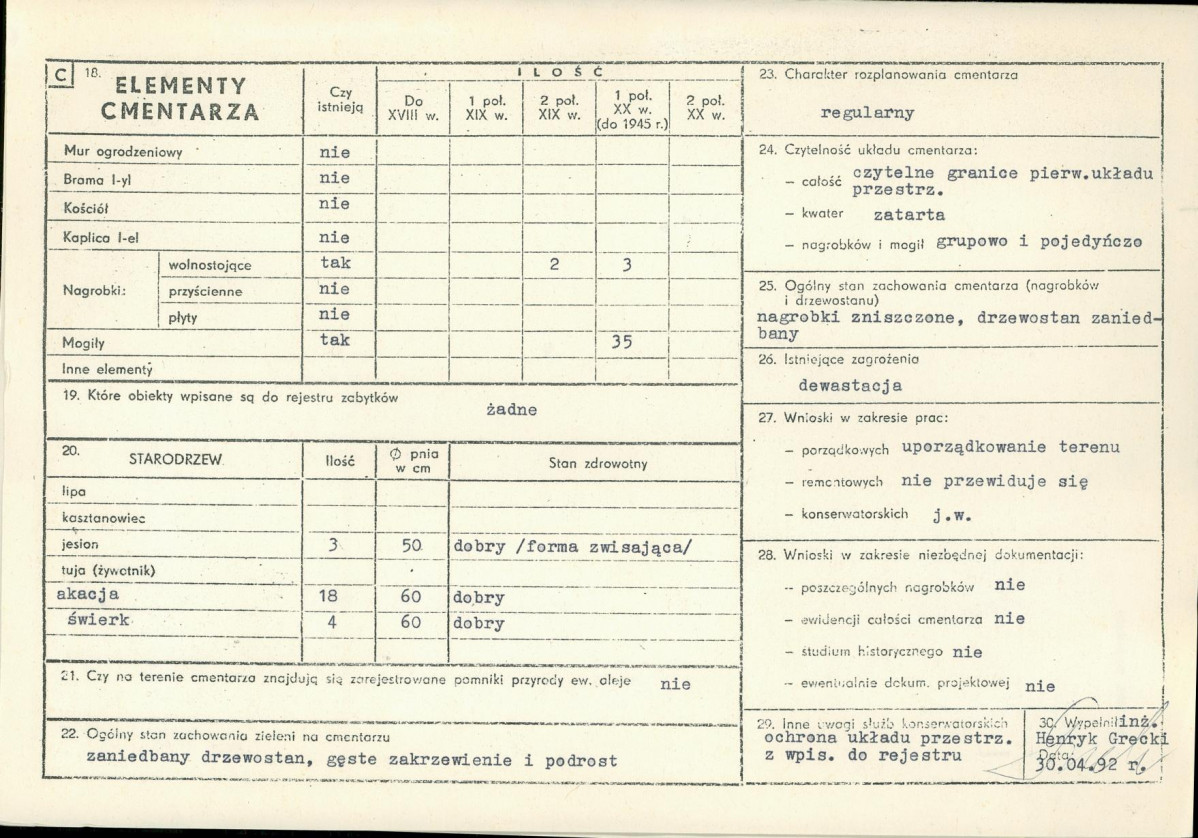 C 18. ELEMENTY CMENTARZA
Czy istnieją
ILOŚĆ
Do XVIII w.
1 poł. XIX w.
2 poł. XIX w.
1 poł. XX w. (do 1945 r.)
2 poł. XX w.
Mur ogrodzeniowy nie
Brama I-yl nie
Kościół nie
Kaplica I-el nie
Nagrobki:
wolnostojące tak 2 3
przyścienne nie
płyty nie
Mogiły tak 35
Inne elementy
19. Które obiekty wpisane są do rejestru zabytków
żadne
20. STARODRZEW Ilość Ø pnia w cm Stan zdrowotny
lipa
kasztanowiec
jesion 3 50 dobry /forma zwisająca/
tuja (żywotnik)
akacja 18 60 dobry
świerk 4 60 dobry
21. Czy na terenie cmentarza znajdują się zarejestrowane pomniki przyrody ew. aleje nie
22. Ogólny stan zachowania zieleni na cmentarzu
zaniedbany drzewostan, gęste zakrzewienie i podrost
23. Charakter rozplanowania cmentarza
regularny
24. Czytelność układu cmentarza:
— całość czytelne granice pierw.układu
przestrz.
— kwater zatarta
— nagrobków i mogił grupowo i pojedyńczo
25. Ogólny stan zachowania cmentarza (nagrobków
i drzewostanu)
nagrobki zniszczone, drzewostan zanied-
bany
26. Istniejące zagrożenia
dewastacja
27. Wnioski w zakresie prac:
— porządkowych uporządkowanie terenu
— remontowych nie przewiduje się
— konserwatorskich j.w.
28. Wnioski w zakresie niezbędnej dokumentacji:
— poszczególnych nagrobków nie
— ewidencji całości cmentarza nie
— studium historycznego nie
— ewentualnie dokum. projektowej nie
29. Inne uwagi służb konserwatorskich
ochrona układu przestrz.
z wpis. do rejestru
30. Wypełnił inż.
Henryk Grecki
Data:
30.04.92 r.